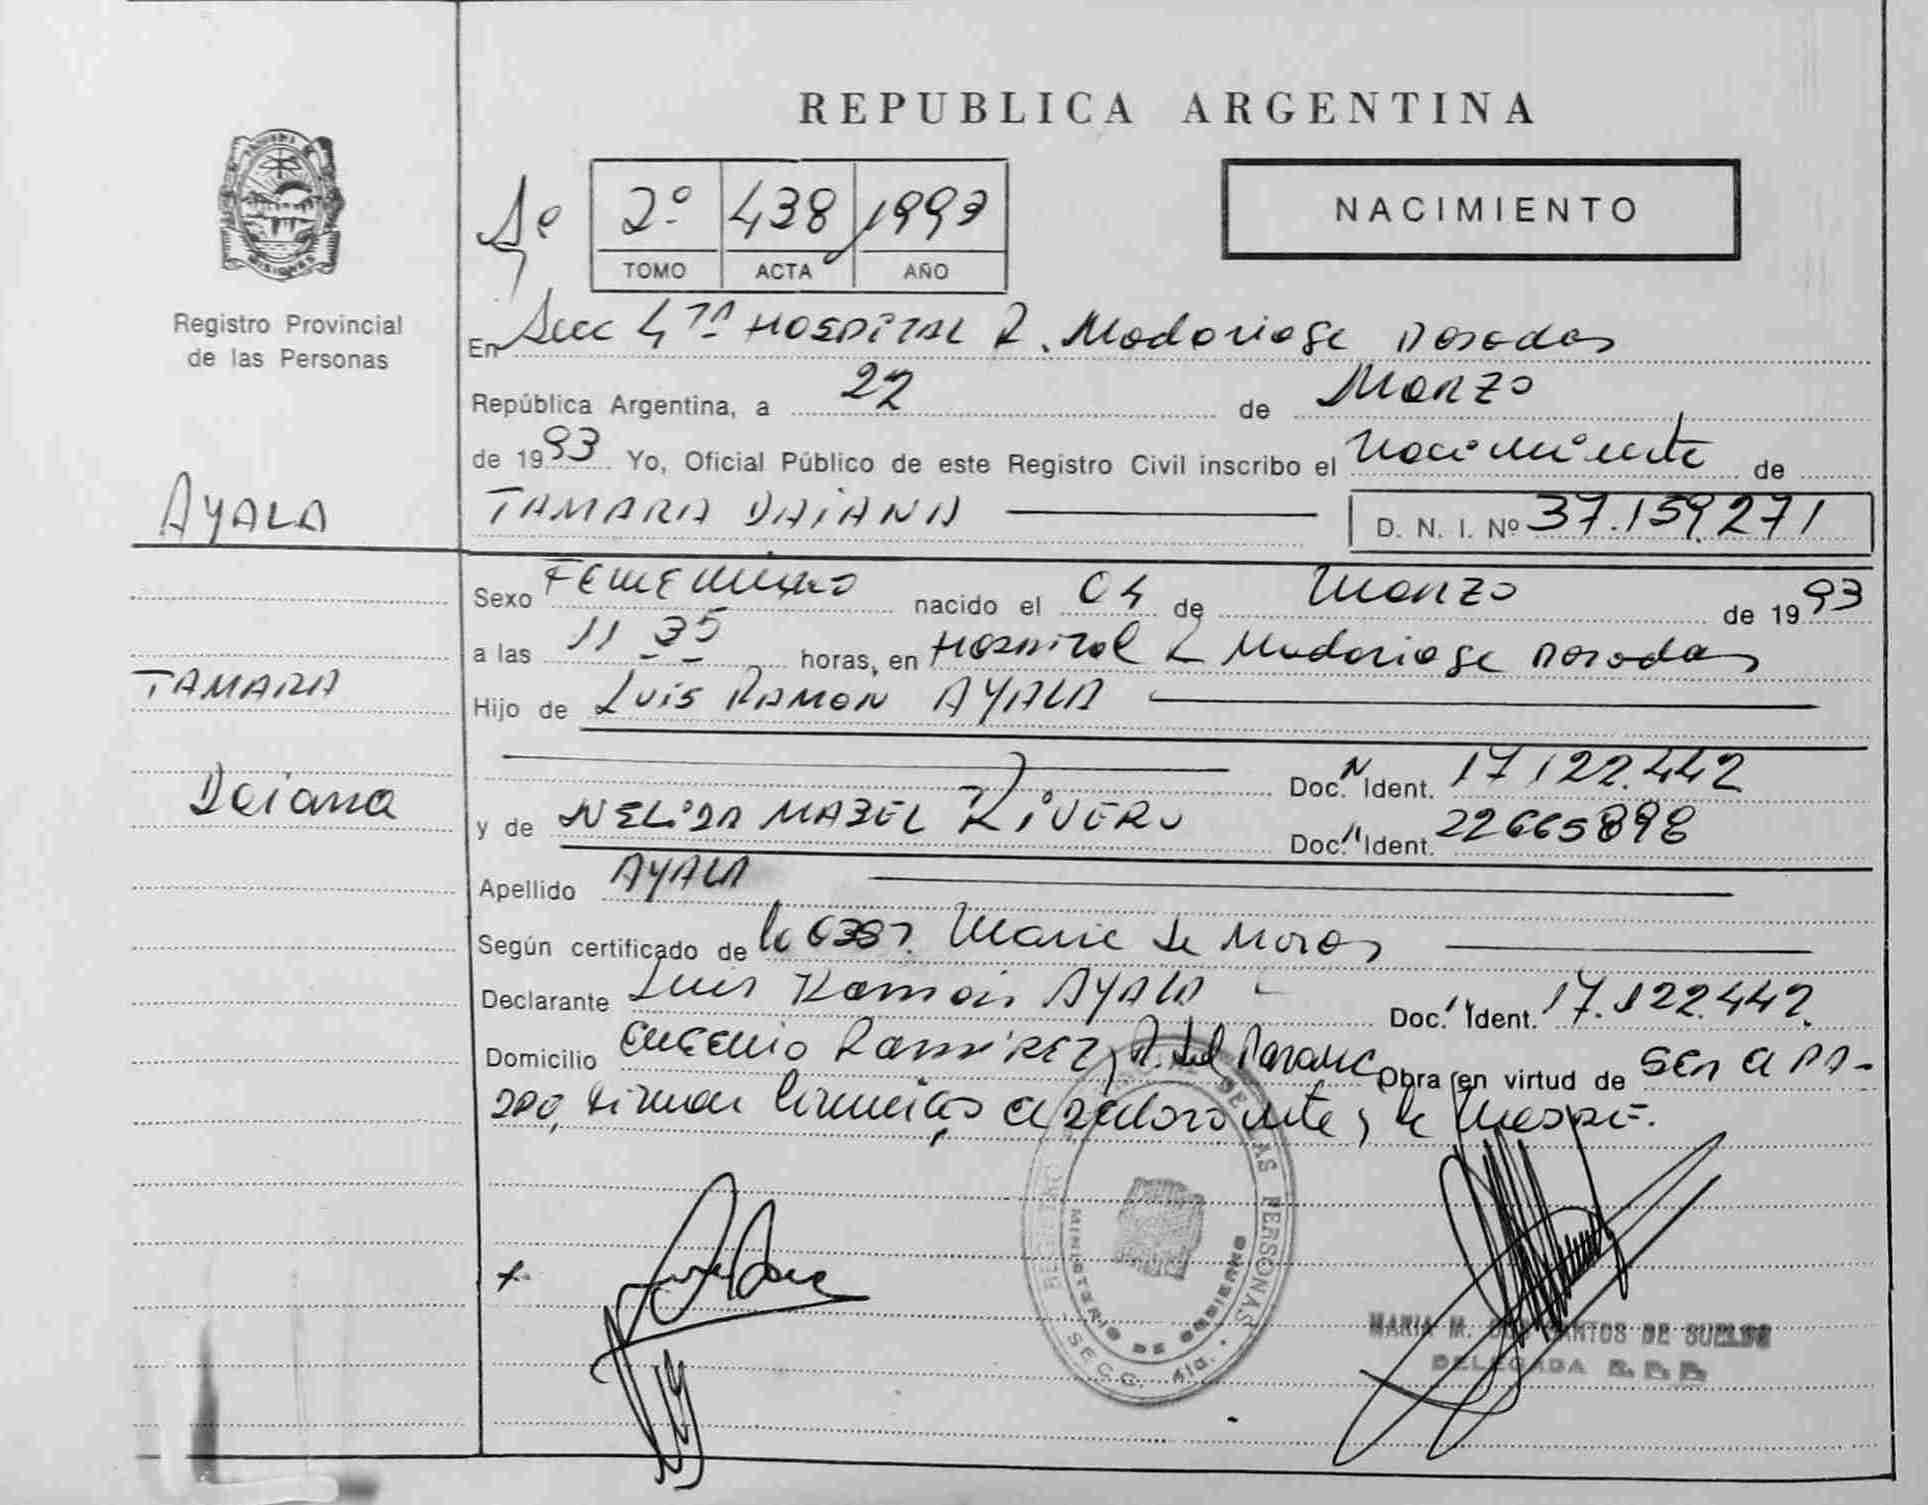 REPUBLICA ARGENTINA
2º 438 1993
TOMO ACTA AÑO
NACIMIENTO
MISIONES
Registro Provincial
de las Personas
En Secc 4ta HOSPITAL R. Madariaga Posadas
República Argentina, a 22 de Marzo
de 1993 Yo, Oficial Público de este Registro Civil inscribo el Nacimiento de
AYALA
TAMARA DAIANA D. N. I. Nº 37.159.271
Sexo FEMENINO nacido el 04 de Marzo de 1993
a las 11 35 horas, en Hospital R Madariaga Posadas
TAMARA
Hijo de LUIS RAMON AYALA
Doc. N Ident. 17.122.442
Daiana
y de NELIDA MABEL RIVERO Doc. Ident. 22665898
Apellido AYALA
Según certificado de la Obst. Marie de Moros
Declarante Luis Ramon AYALA Doc. Ident. 17.122.442
Domicilio EUGENIO RAMIREZ, P. del Parana Obra en virtud de SER el PA-
DRE, firman el declarante y la
REGISTRO DE LAS PERSONAS
MINISTERIO DE GOBIERNO
SECC. 4ta.
MARIA M. DOS SANTOS DE SUELDO
DELEGADA R. P. P.